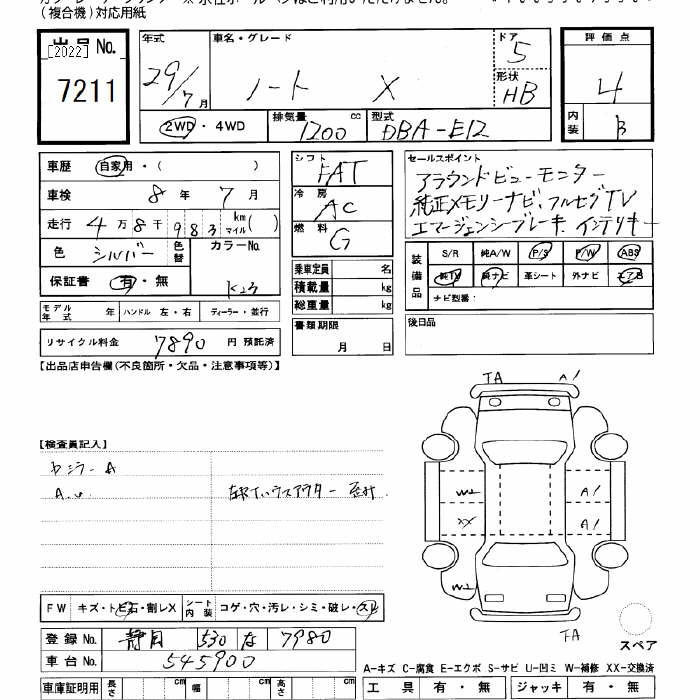 (複合機)対応用紙
出品 No.
[2022]
7211
年式 29/7月
車名・グレード
ノート X
ドア 5
形状 HB
評価点 4
内装 B
2WD・4WD
排気量 1200 cc
型式 DBA-E12
車歴 自家用・( )
車検 8年 7月
走行 4万8千983 km マイル( )
色 シルバー 色替 カラーNo. K23
保証書 有・無
シフト FAT
冷房 AC
燃料 G
乗車定員 名
積載量 kg
総重量 kg
セールスポイント
アラウンドビューモニター
純正メモリーナビ、フルセグTV
エマージェンシーブレーキ インテリキー
装備品
S/R 純A/W P/S P/W ABS
純TV 純ナビ 革シート 外ナビ エアB
ナビ型番:
モデル年式 年 ハンドル 左・右 ディーラー・並行
リサイクル料金 7890 円 預託済
書類期限 月 日
後日品
【出品店申告欄(不良箇所・欠品・注意事項等)】
TA A1
【検査員記入】
W2 A1
XX A1
W2
TA
スペア
FW キズ・トビ石・割レX シート内装 コゲ・穴・汚レ・シミ・破レ・スレ
登録 No. 530 な 7980
車台 No. 545900
A-キズ C-腐食 E-エクボ S-サビ U-凹ミ W-補修 XX-交換済
車庫証明用 長さ cm 幅 cm 高さ cm
工具 有・無 ジャッキ 有・無